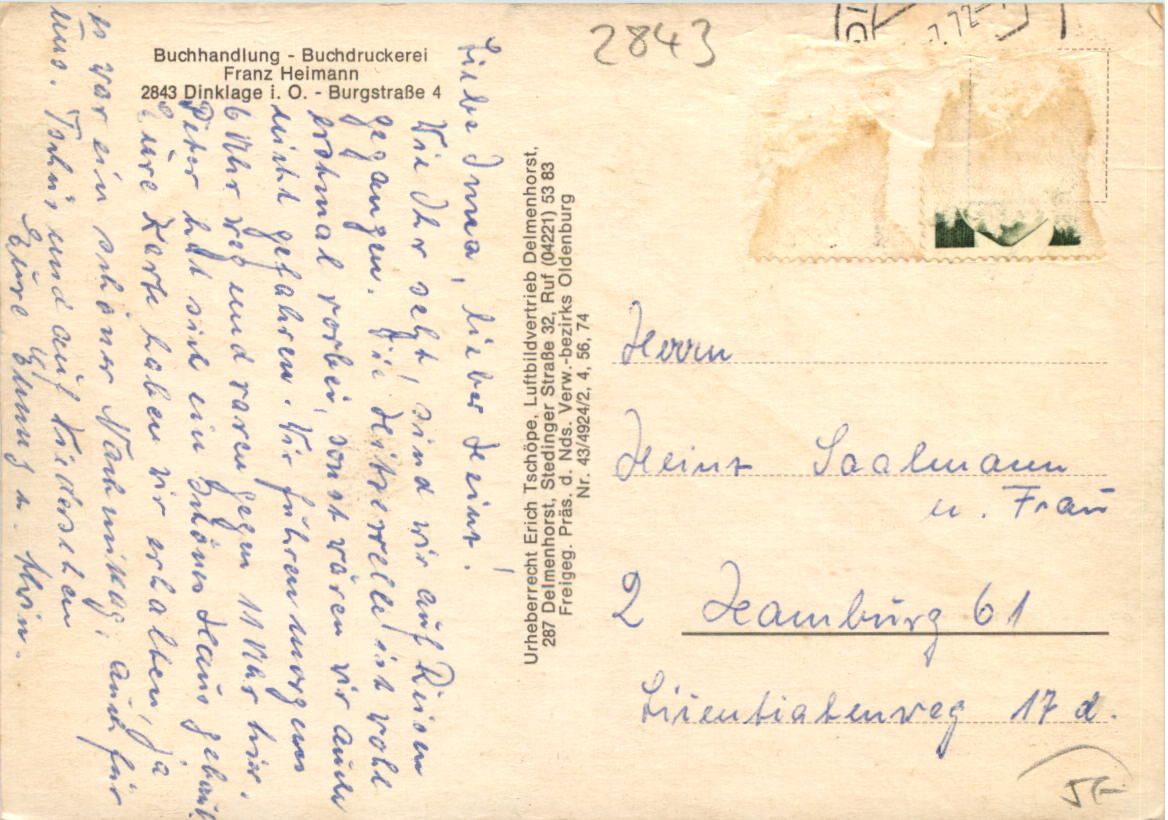 2843
7.72-1
Buchhandlung - Buchdruckerei
Franz Heimann
2843 Dinklage i. O. - Burgstraße 4
Liebe Irma, lieber Heinz!
Wie Ihr seht, sind wir auf Reisen
gegangen. Die Hitzewelle ist wohl
erstmal vorbei, sonst wären wir auch
nicht gefahren. Wir fuhren morgens
6 Uhr weg und waren gegen 11 Uhr hier.
Peter hat sich ein schönes Haus gebaut
Eure Karte haben wir erhalten, ja
es war ein schöner Nachmittag, auch für
uns. Tschüs und auf Wiedersehen
Eure Änny u.
Urheberrecht Erich Tschöpe, Luftbildvertrieb Delmenhorst,
287 Delmenhorst, Stedinger Straße 32, Ruf (04221) 53 83
Freigeg. Präs. d. Nds. Verw.-bezirks Oldenburg
Nr. 43/4924/2, 4, 56, 74
Herrn
Heinz Saalmann
u. Frau
2 Hamburg 61
Liientiatenweg 17 d.
5F